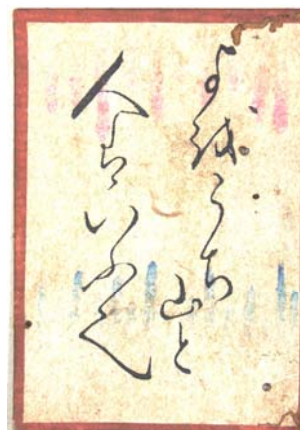 よをうぢ山と
人はいふなり